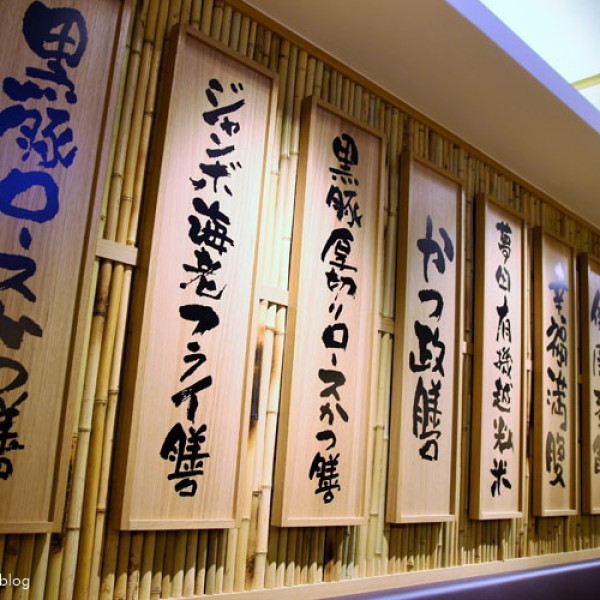 黒豚ロースかつ膳
ジャンボ海老フライ膳
黒豚厚切りロースかつ膳
かつ政膳
夢田有機越粒米
幸福満腹
blog